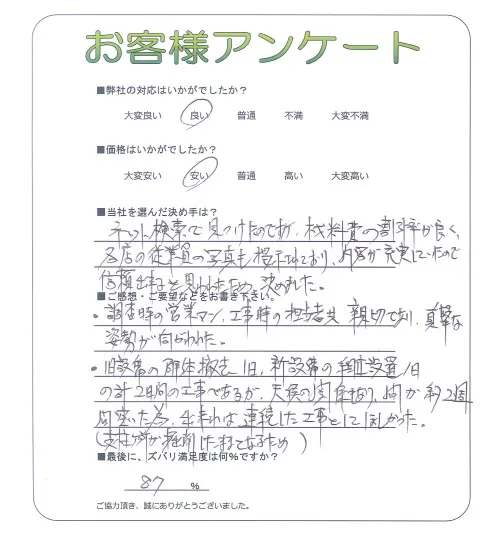 お客様アンケート
■弊社の対応はいかがでしたか？
大変良い 良い 普通 不満 大変不満
■価格はいかがでしたか？
大変安い 安い 普通 高い 大変高い
■当社を選んだ決め手は？
ネット検索で見つけたのですが、材料費の割引率が良く、
各店の従業員の写真も提示されており、内容が充実していたので
信頼出来ると思われたため、決めました。
■ご感想・ご要望などをお書き下さい。
・調査時の営業マン、工事時の担当者共 親切であり、真摯な
姿勢が向われた。
・旧設備の解体撤去1日、新設備の組立設置1日
の計2日間の工事であるが、天候の関係もあり、間が約2週
間空いた為、出来れば連続した工事としてほしかった。
(支柱の穴が掘削したままとなるため)
■最後に、ズバリ満足度は何%ですか？
87 %
ご協力頂き、誠にありがとうございました。